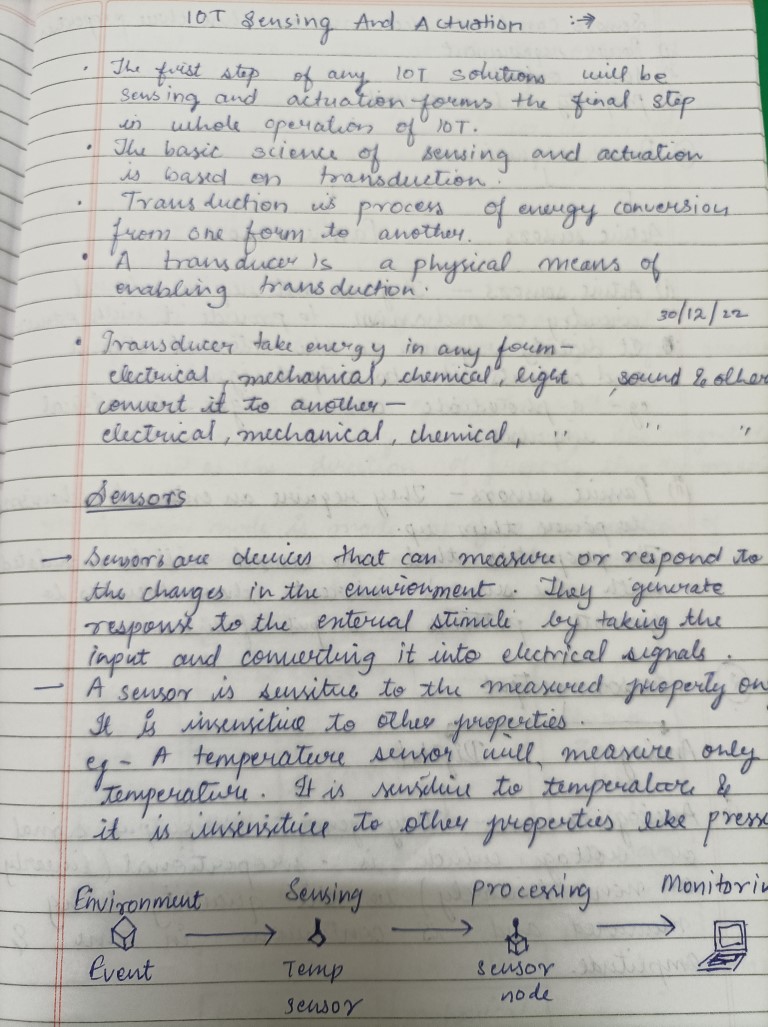 IOT Sensing And Actuation :→
• The first step of any IOT solutions will be
sensing and actuation forms the final step
in whole operation of IOT.
• The basic science of sensing and actuation
is based on transduction.
• Transduction is process of energy conversion
from one form to another.
• A transducer is a physical means of
enabling transduction.
30/12/22
• Transducer take energy in any form-
electrical, mechanical, chemical, light, sound & other
convert it to another-
electrical, mechanical, chemical, " " "
Sensors
→ Sensors are devices that can measure or respond to
the changes in the environment. They generate
response to the enterial stimuli by taking the
input and converting it into electrical signals.
— A sensor is sensitive to the measured property on
It is insensitive to other properties.
eg - A temperature sensor will measure only
temperature. It is sensitive to temperature &
it is insensitive to other properties like press
Environment → Sensing → Processing → Monitorin
Event Temp sensor
sensor node